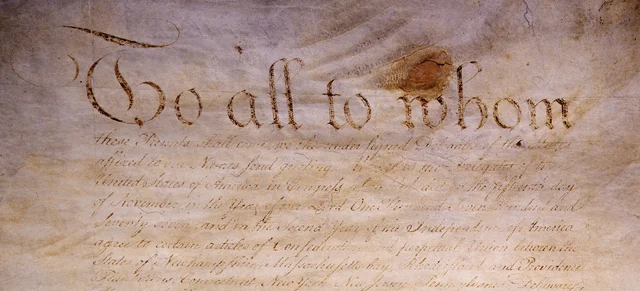 To all to whom
these Presents shall come, we the under signed Delegates of the States
affixed to our Names send greeting. Whereas the Delegates of the
United States of America in Congress assembled did on the fifteenth day
of November in the Year of our Lord One Thousand Seven Hundred and
Seventy seven, and in the Second Year of the Independence of America
agree to certain articles of Confederation and perpetual Union between the
States of Newhampshire, Massachusetts-bay, Rhodeisland and Providence
Plantations, Connecticut, New York, New Jersey, Pennsylvania, Delaware,